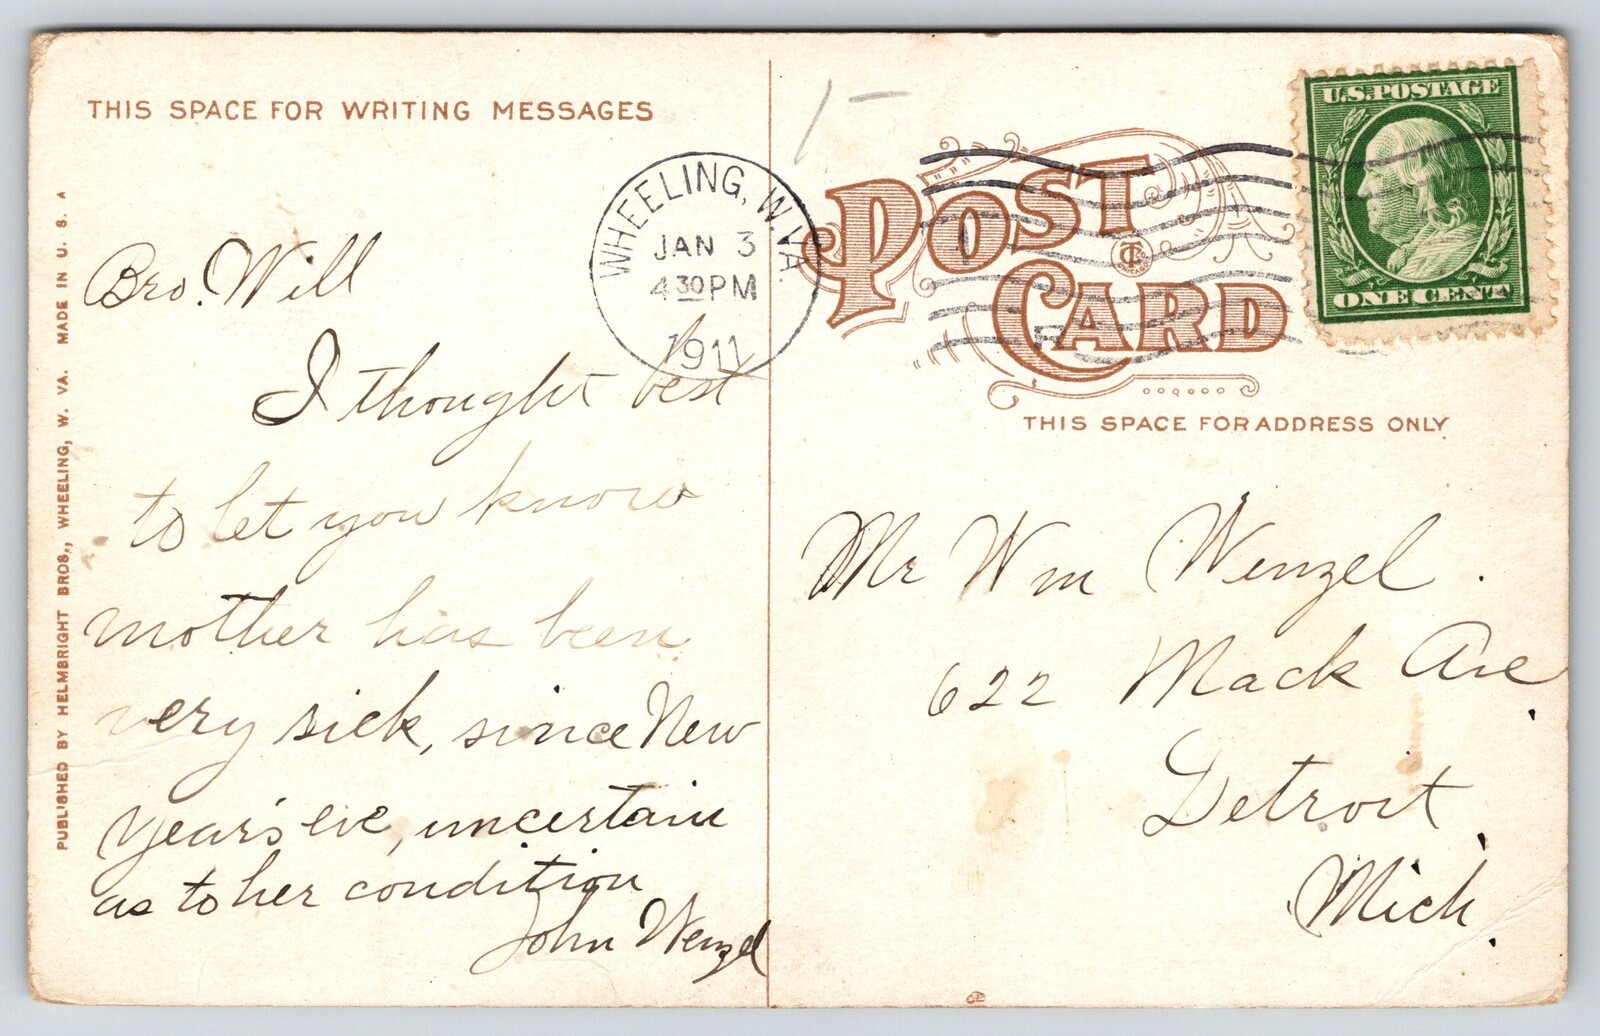 THIS SPACE FOR WRITING MESSAGES
PUBLISHED BY HELMBRIGHT BROS., WHEELING, W. VA. MADE IN U. S. A
Bro. Will
I thought best
to let you know
mother has been
very sick, since New
Year's eve, uncertain
as to her condition
John Wenzel
WHEELING, W. VA.
JAN 3
4 30 PM
1911
POST
CARD
CHICAGO
THIS SPACE FOR ADDRESS ONLY
U.S. POSTAGE
ONE CENT
Mr Wm Wenzel.
622 Mack Ave.
Detroit,
Mich.